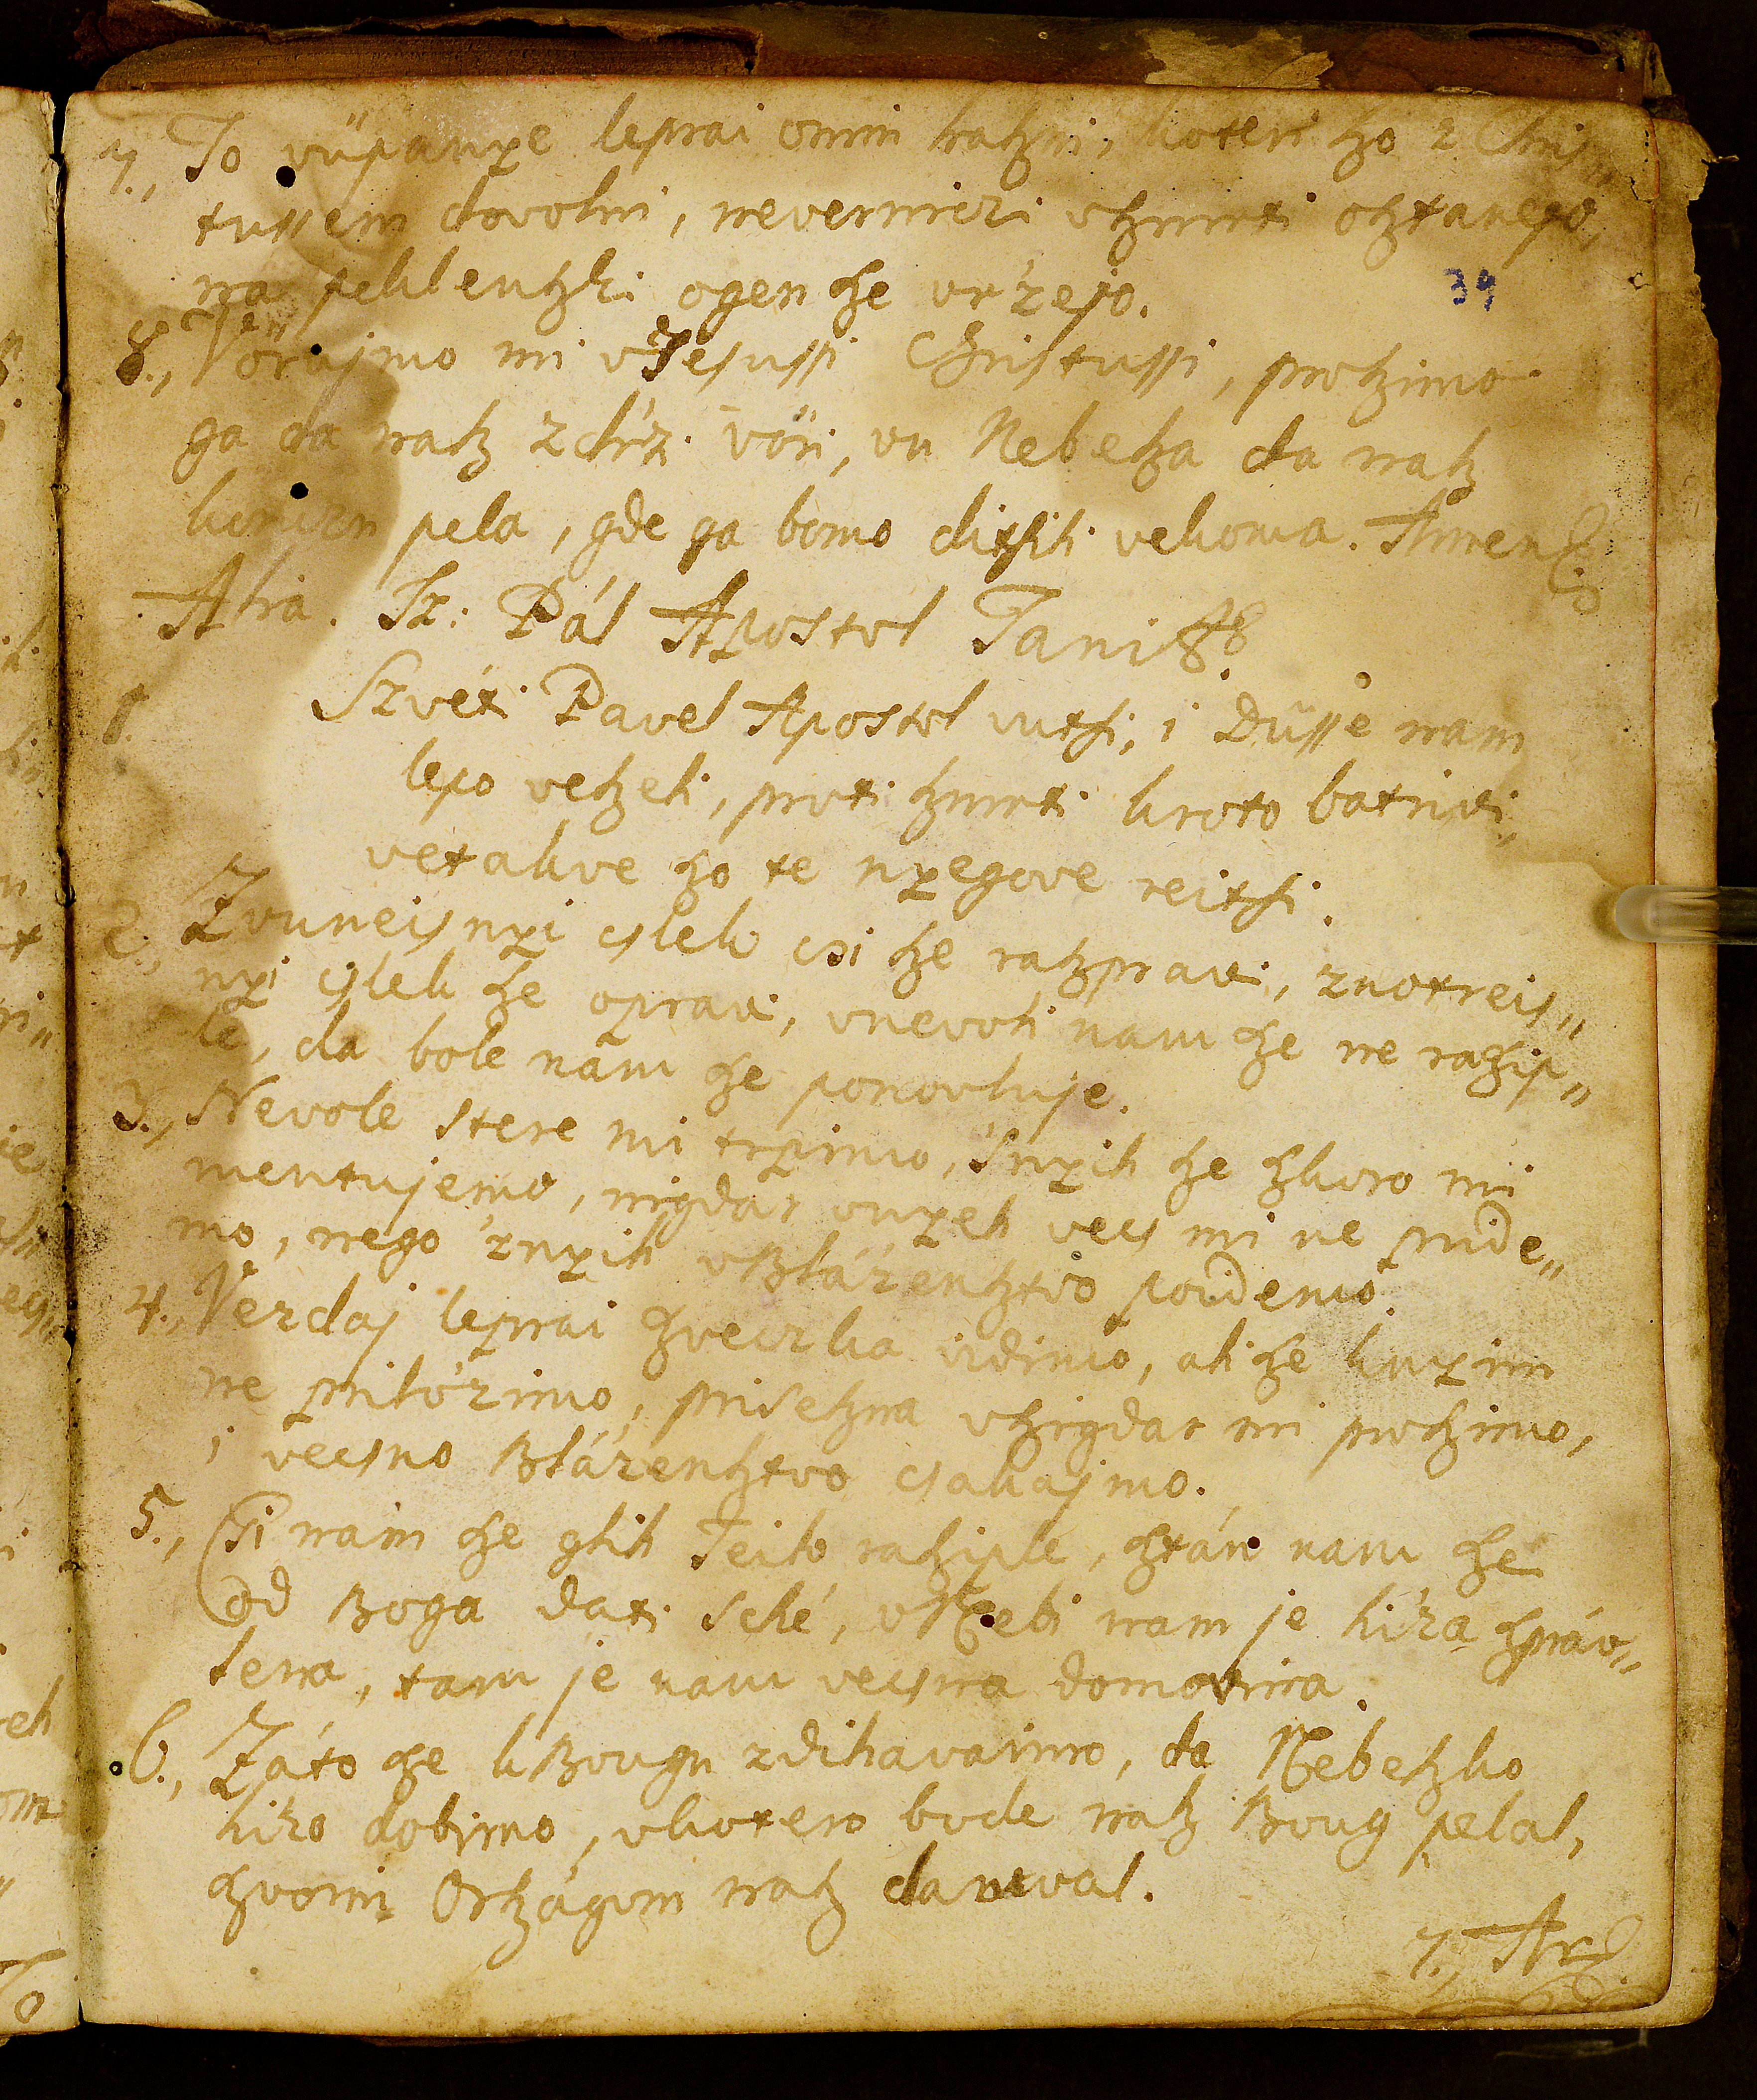 7., To vüpanye leprai omin hatzni, koteri szo z Chris„
tussem dovolni, nevernitzi vszmrti osztanejo,
na peklenszki ogen sze vr'zejo.
39
8., Vörujmo mi v Jesussi Christussi, proszimo
ga da nasz zdr'zi vöri, vu Nebesza da nasz
konczu pela, gde ga bomo ditsiti vekoma. Amen
Alia. Sz: Pál Apostol Tani &c.
1. Szvéti Pavel Apostol vutsi, i Düsse nam
lepo veszeli, proti szmrti kroto batrivi,
vetakve szo te nyegove reitsi.
2., Zvuneisnyi cslek csi sze raszpravi, znotreis„
nyi cslek sze opravi, vnevoli nam sze ne raszip„
le, da bole nam sze ponovluje.
3., Nevole stere mi trpimo, 'snyih sze szkoro mi
mentujemo, nigdar vnyeh vecs mi ne pride„
mo, nego 'znyih vBlá'zensztvo poidemo.
4., Vezdaj leprai szveczka vidimo, ali sze knyim
ne priló'zimo, prisesztna vszigdar mi proszimo,
i vecsno Blá'zensztvo csakajmo.
5., Csi nam sze glih Teilo rasziple, sztán nam sze
od Boga dati scsé, vNebi nam je hi'za szpráv„
lena, tam je nam vecsna domovina.
6., Záto sze kBougu zdihavaimo, da Nebeszko
hi'zo dobimo, vkotero bode nasz Boug pelal,
szvoim Országom nasz daruval.
7., Ar